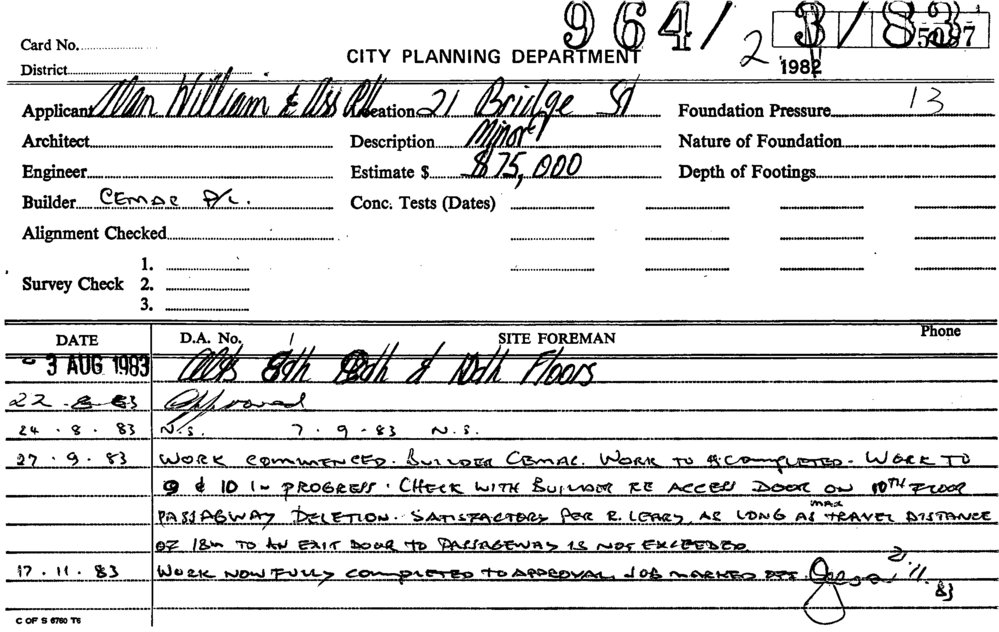 964 / 2 3 / 83
Card No. 5097
CITY PLANNING DEPARTMENT
District 1982
Applicant Alan William & Ass P/L Location 21 Bridge St Foundation Pressure 13
Architect Description Minor Nature of Foundation
Engineer Estimate $ $75,000 Depth of Footings
Builder CEMAC P/L. Conc. Tests (Dates)
Alignment Checked
1.
Survey Check 2.
3.
DATE D.A. No. SITE FOREMAN Phone
- 3 AUG 1983 8th & 10th Floors
22 . 8 83 Approved
24 . 8 . 83 N.S. 7 . 9 . 83 N.S.
27 . 9 . 83 WORK COMMENCED. BUILDER CEMAC. WORK TO 8 COMPLETED. WORK TO
9 & 10 IN PROGRESS. CHECK WITH BUILDER RE ACCESS DOOR ON 10TH FLOOR
PASSAGWAY DELETION. SATISFACTORY PER R. LEARY, AS LONG AS MAX TRAVEL DISTANCE
OF 18m TO AN EXIT DOOR TO PASSAGEWAY IS NOT EXCEEDED
17 . 11 . 83 WORK NOW FULLY COMPLETED TO APPROVAL. JOB MARKED OFF. 21.11.83
C OF S 6760 T6